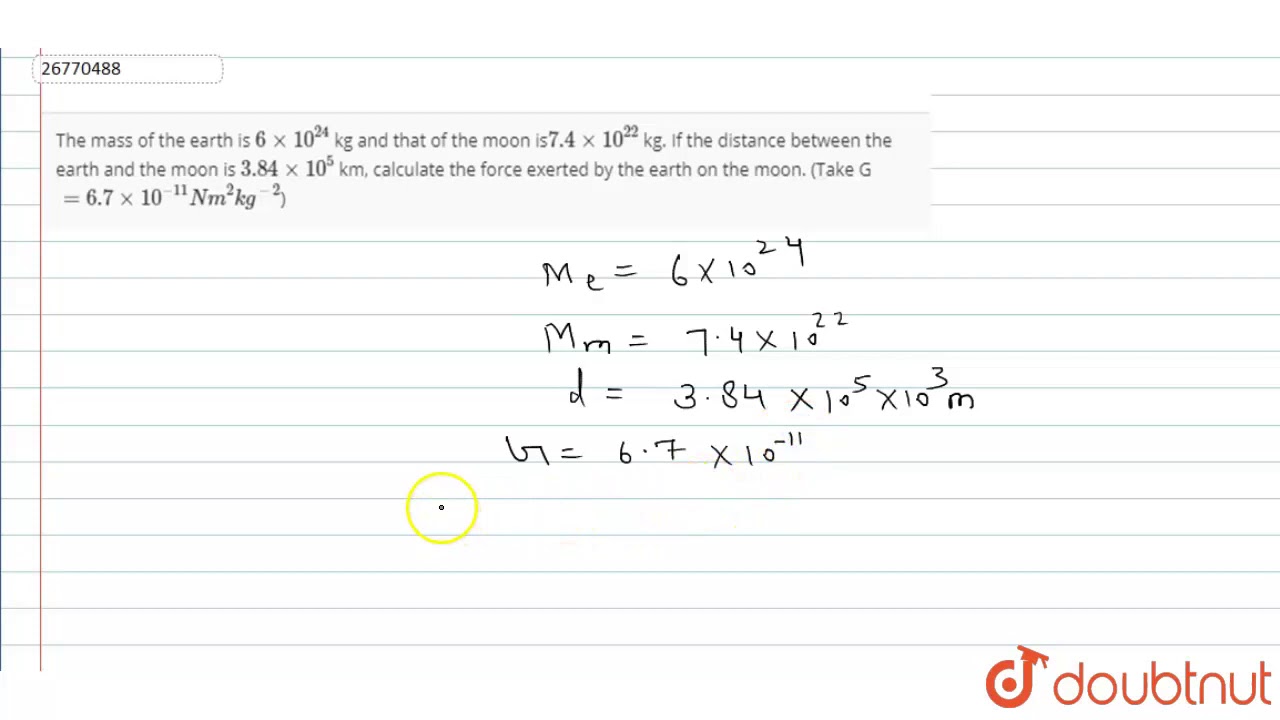 26770488
The mass of the earth is 6 × 10²⁴ kg and that of the moon is7.4 × 10²² kg. If the distance between the
earth and the moon is 3.84 × 10⁵ km, calculate the force exerted by the earth on the moon. (Take G
= 6.7 × 10⁻¹¹Nm²kg⁻²)
Me = 6 × 10²⁴
Mm = 7.4 × 10²²
d = 3.84 × 10⁵ × 10³ m
G = 6.7 × 10⁻¹¹
doubtnut